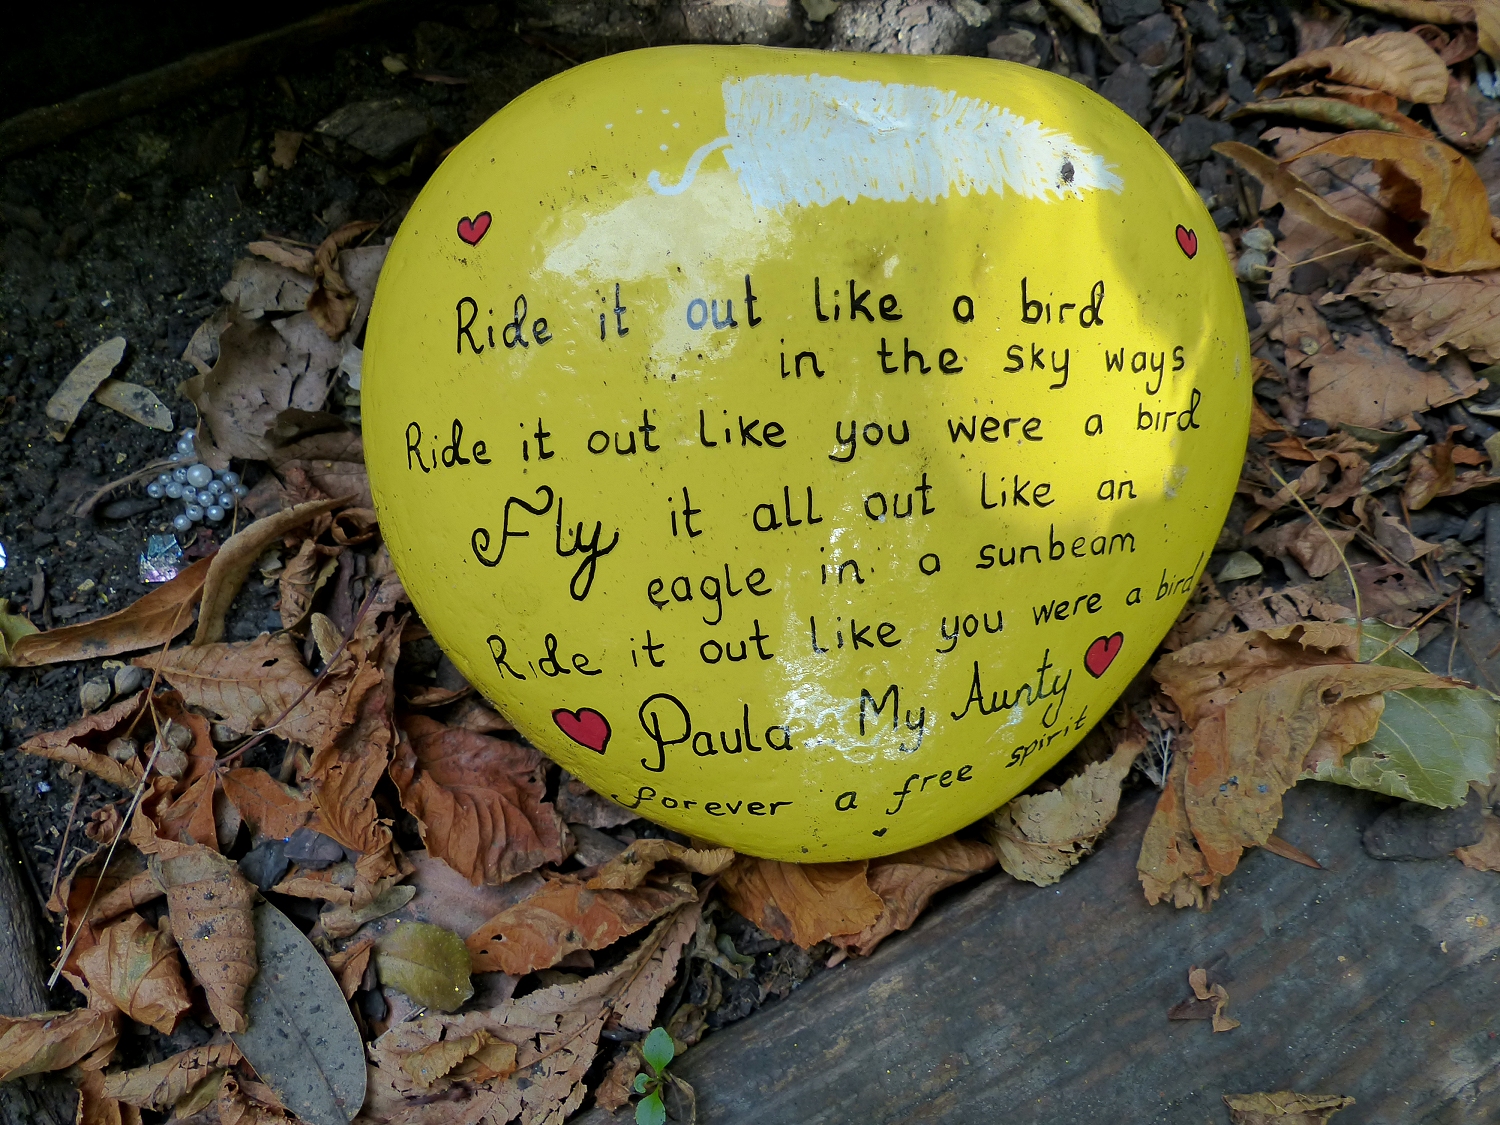 Ride it out like a bird
in the sky ways
Ride it out like you were a bird
Fly it all out like an
eagle in a sunbeam
Ride it out like you were a bird
Paula My Aunty
forever a free spirit